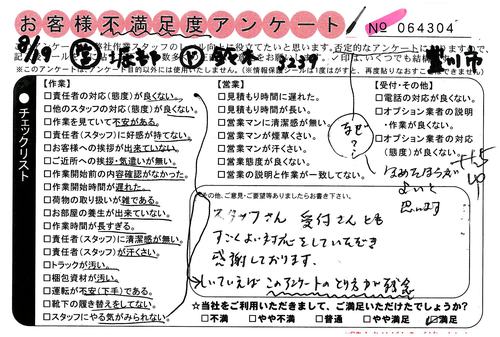 お客様不満足度アンケート
No 064304
8/19
豊川市
※このアンケートは、アンケート目的以外には使用いたしません。
チェックリスト
【作業】
□責任者の対応(態度)が良くない。
□他のスタッフの対応(態度)が良くない。
□作業を見ていて不安がある。
□責任者(スタッフ)に好感が持てない。
□お客様への挨拶が出来ていない。
□ご近所への挨拶・気遣いが無い。
□作業開始前の内容確認がなかった。
□作業開始時間が遅れた。
□荷物の取り扱いが雑である。
□お部屋の養生が出来ていない。
□作業時間が長すぎる。
□責任者(スタッフ)に清潔感が無い。
□責任者(スタッフ)が汗くさい。
□トラックが汚い。
□梱包資材が汚い。
□運転が不安(下手)である。
□靴下の履き替えをしてない。
□スタッフにやる気がみられない。
【営業】
□見積もり時間に遅れた。
□見積もり時間が長い。
□営業マンに清潔感が無い。
□営業マンが煙草くさい。
□営業マンが汗くさい。
□営業態度が良くない。
□営業の説明と作業が一致してない。
【受付・その他】
□電話の対応が良くない。
□オプション業者の説明
・作業が良くない。
□オプション業者の対応
(態度)が良くない。
なぜ?
ほめたほうが
よいと
思います
その他、ご意見・ご要望等ありましたらお書き下さい。
スタッフさん 受付さんとも
すごくよい対応をしていただき
感謝しております。
しいていえばこのアンケートのとり方が残念
☆当社をご利用いただきまして、ご満足いただけたでしょうか?
□不満 □やや不満 □普通 □やや満足 ☑満足